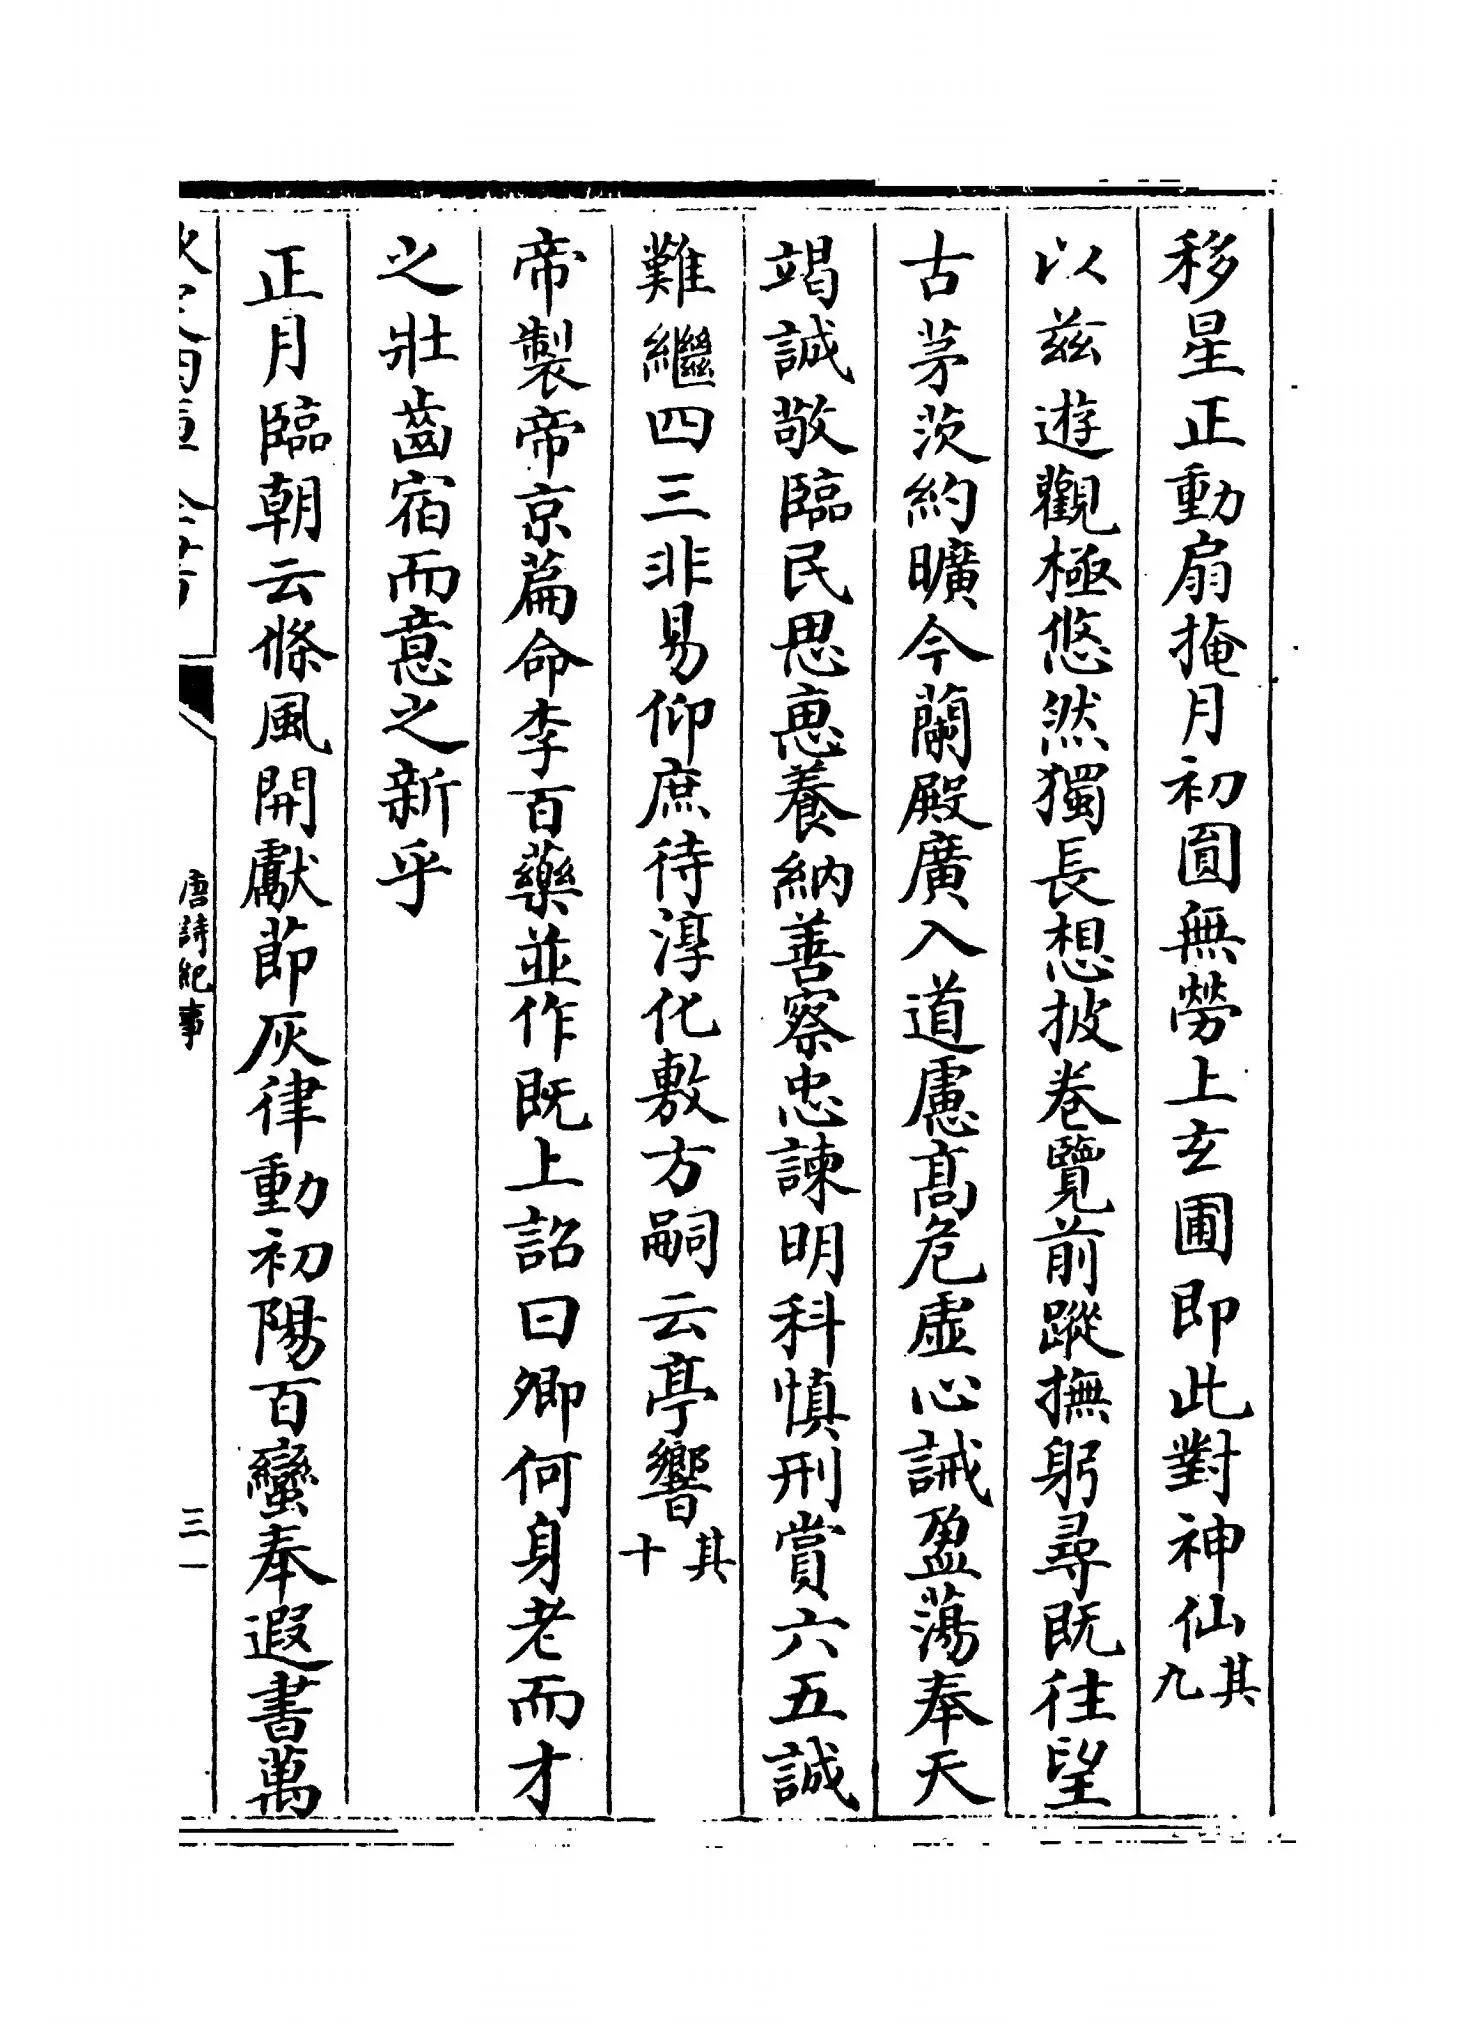 移星正動扇掩月初圎無勞上玄圃即此對神仙其九
以兹遊觀極悠然獨長想披卷覽前蹤撫躬尋既往望
古茅茨約曠今蘭殿廣入道慮髙危虚心誡盈蕩奉天
竭誠敬臨民思恵養納善察忠諫明科慎刑賞六五誠
難繼四三非易仰庶待淳化敷方嗣云亭響其十
帝製帝京篇命李百藥並作既上詔曰卿何身老而才
之壯齒宿而意之新乎
正月臨朝云條風開獻節灰律動初陽百蠻奉遐書萬
唐詩紀事
三一